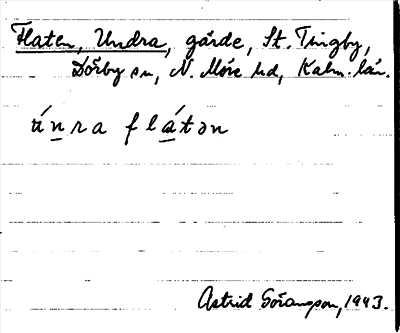 Flaten, Undra, gärde, St. Tingby,
Dörby sn, N. Möre hd, Kalm. län.
ú̱nra flá̱tən
Astrid Göransson, 1943.